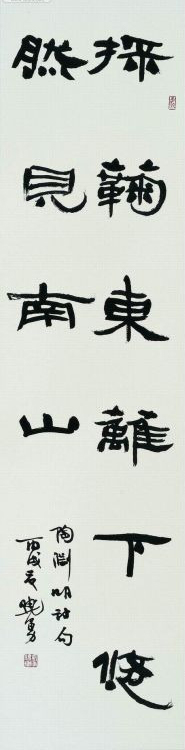 採蘜東離下悠
然見南山
陶淵明詩句
丙戌夏曉勇